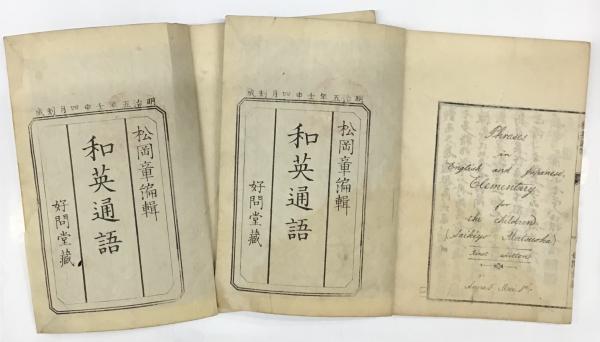 明治五年壬申四月刻成
松岡章編輯
和英通語
好問堂藏
明治五年壬申四月刻成
松岡章編輯
和英通語
好問堂藏
Phrases
in
English and Japanese,
Elementary
for
the children
Matsuoka)
First edition